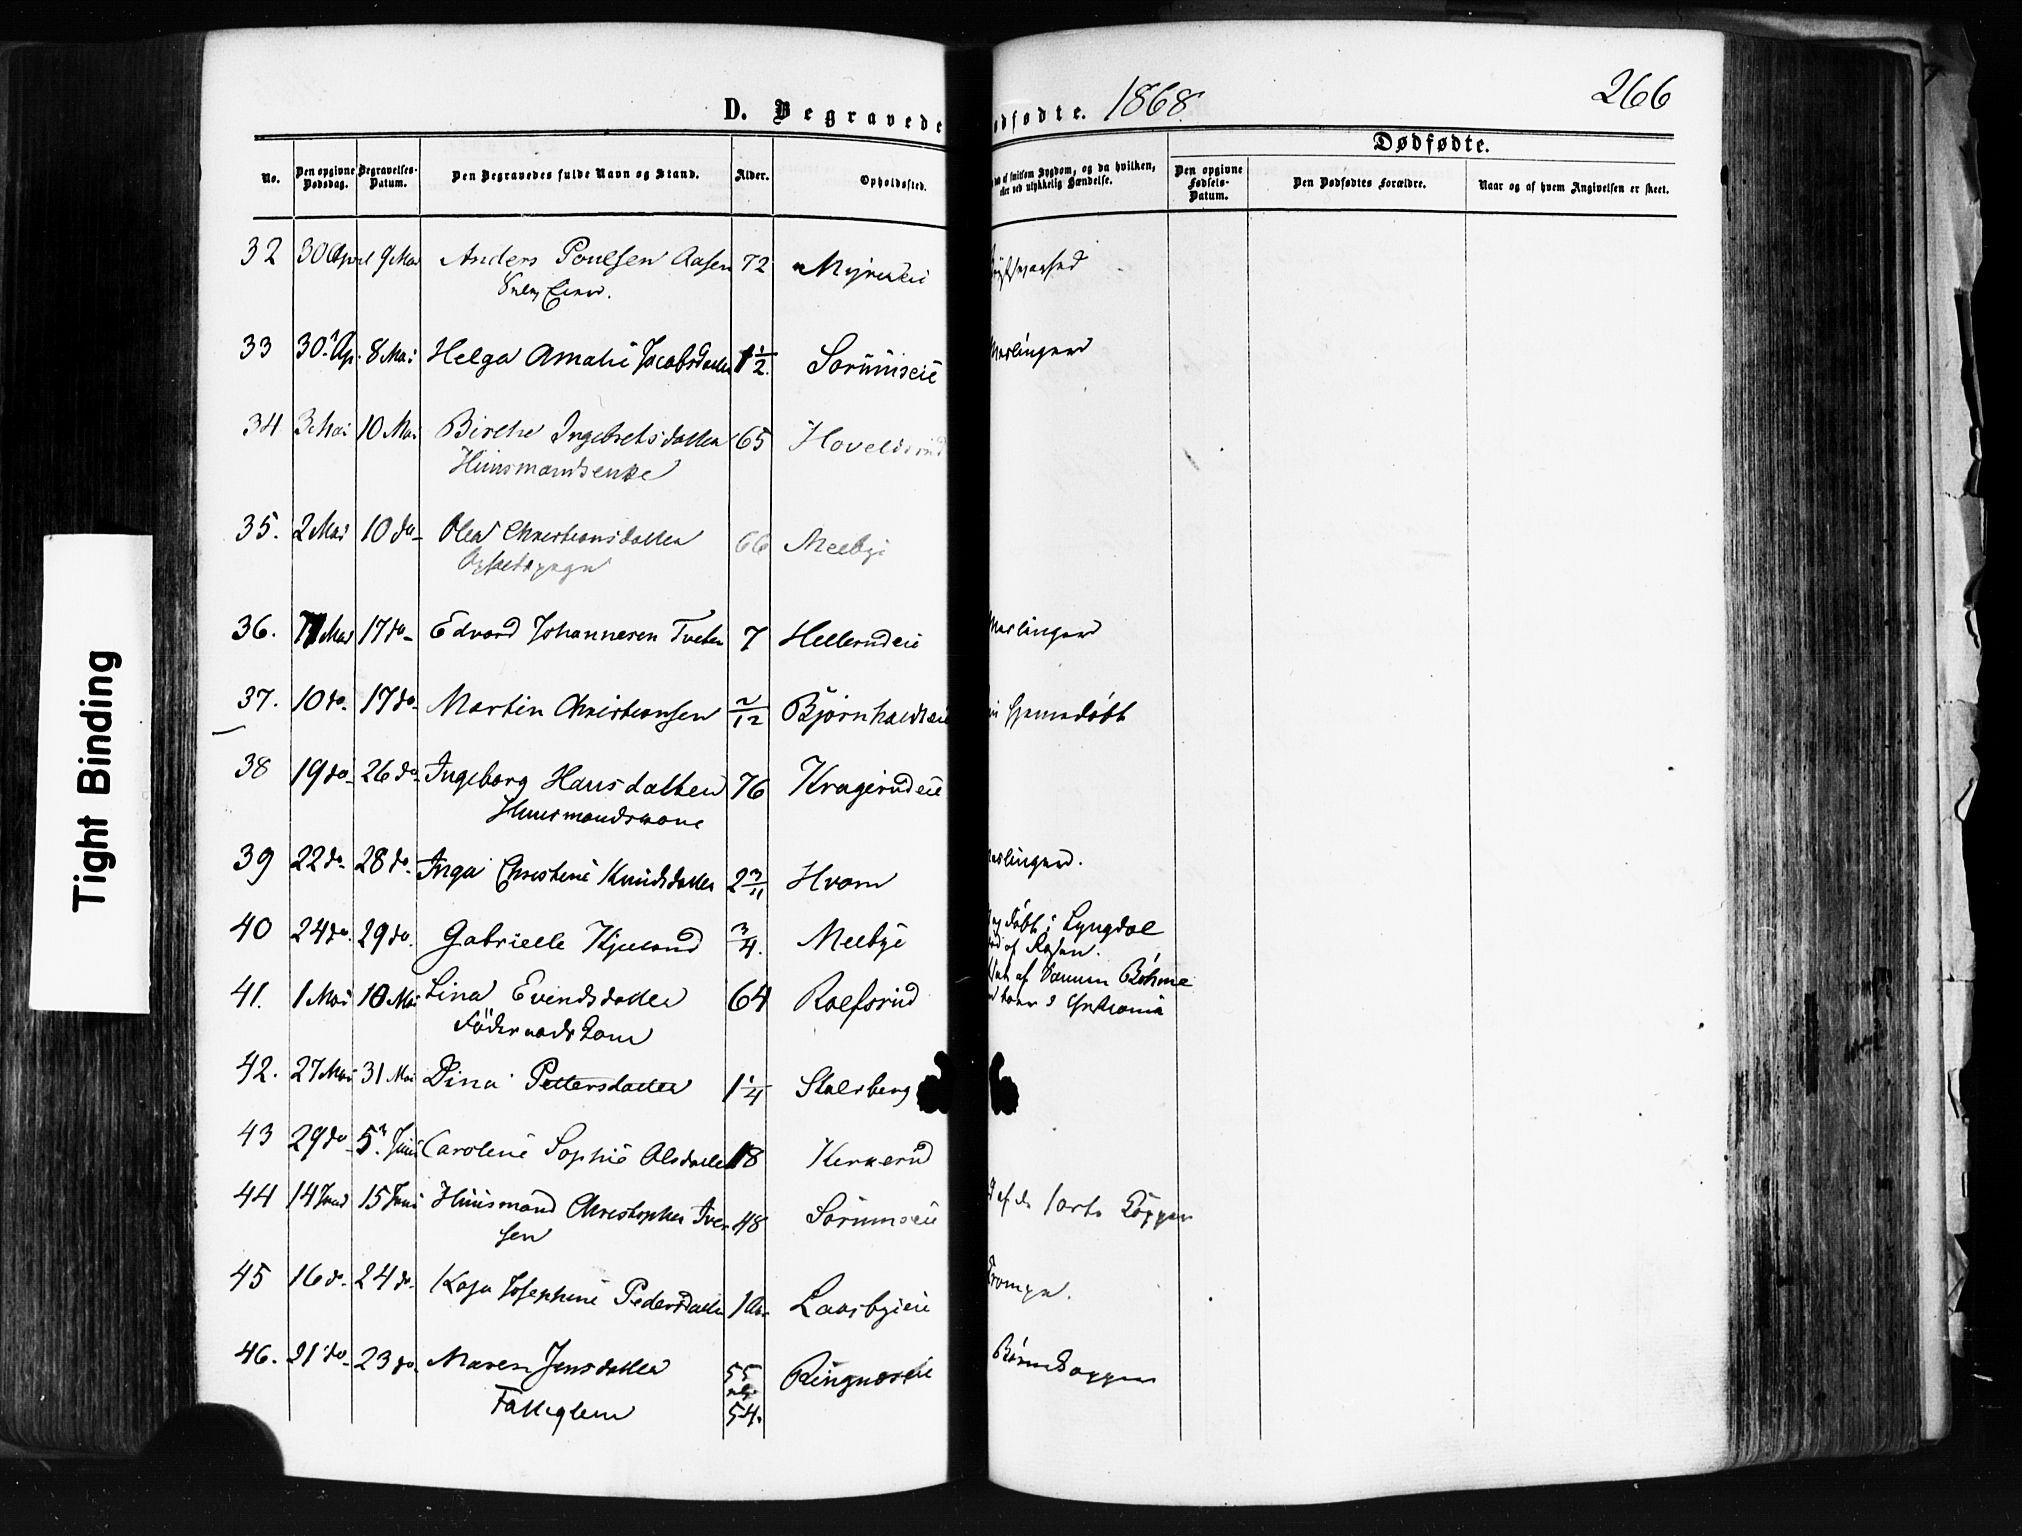 266
D. Begravede dsødte. 1868
Dødfødte.
No. Den opgivne Dødsdag. Begravelses-Datum. Den Begravedes fulde Navn og Stand. Alder. Opholdssted. af smitsom Sygdom, og da hvilken, eller ved ulykkelig Hændelse. Den opgivne Fødsels-Datum. Den Dødfødtes Forældre. Naar og af hvem Angivelsen er skeet.
32 30 April 9 Mai Anders Poulsen Aasen 72 Myreneie
33 30 Ap. 8 Mai Helga Amalie Jacobsdatter 1 1/2 Sørumseie Meslinger
34 3 Mai 10 Mai Birthe Ingebretsdatter 65 Hovelsrud
Huusmandsenke
35. 2 Mai 10 do Olea Christiansdatter 66 Meeby
36. 7 Mai 17 do Edvard Johannesen Tveten 7 Hellerudeie Meslinger
37. 10 do 17 do Martin Christiansen 2/12 Bjørnhaldseie Hjemmedøbt
38 19 do 26 do Ingeborg Hansdatter 76 Kragerudeie
Huusmandskone
39 22 do 28 do Inga Christine Knudsdatter 2 3/11 Hvam eslinger.
40 24 do 29 do Gabrielle 3/4 Meebye og døbt i Lyngdal
af
41. 1 Mai 10 Mai Lina Evendsdatter 64 Rolfsrud af Böhme
Föderaads Kone
42. 27 Mai 31 Mai Dina Pettersdatter 1 1/4 Stalsberg
43 29 do 5 Juni Caroline Sophie Olsdatter 18 Kerkerud
44 14 Juni 15 Juni Huusmand Christopher Iver 48 Sørumseie af de sorte Kopper
sen
45 16 do 24 do Kaja Josephine Pedersdatter 1 Aar Laasbyeie
46. 21 do 23 do Maren Jensdatter 55 Ringnæseie Børnekopper
Fattiglem 54.
Tight Binding